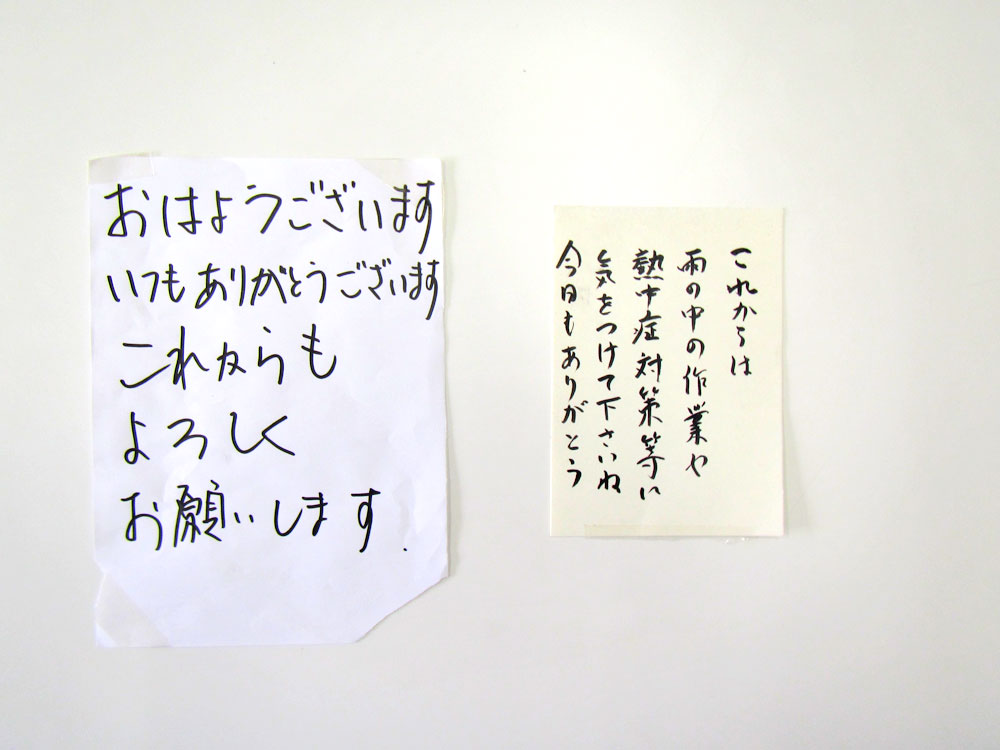 おはようございます
いつもありがとうございます
これからも
よろしく
お願いします.
これからは
雨の中の作業や
熱中症対策等に
気をつけて下さいね
今日もありがとう